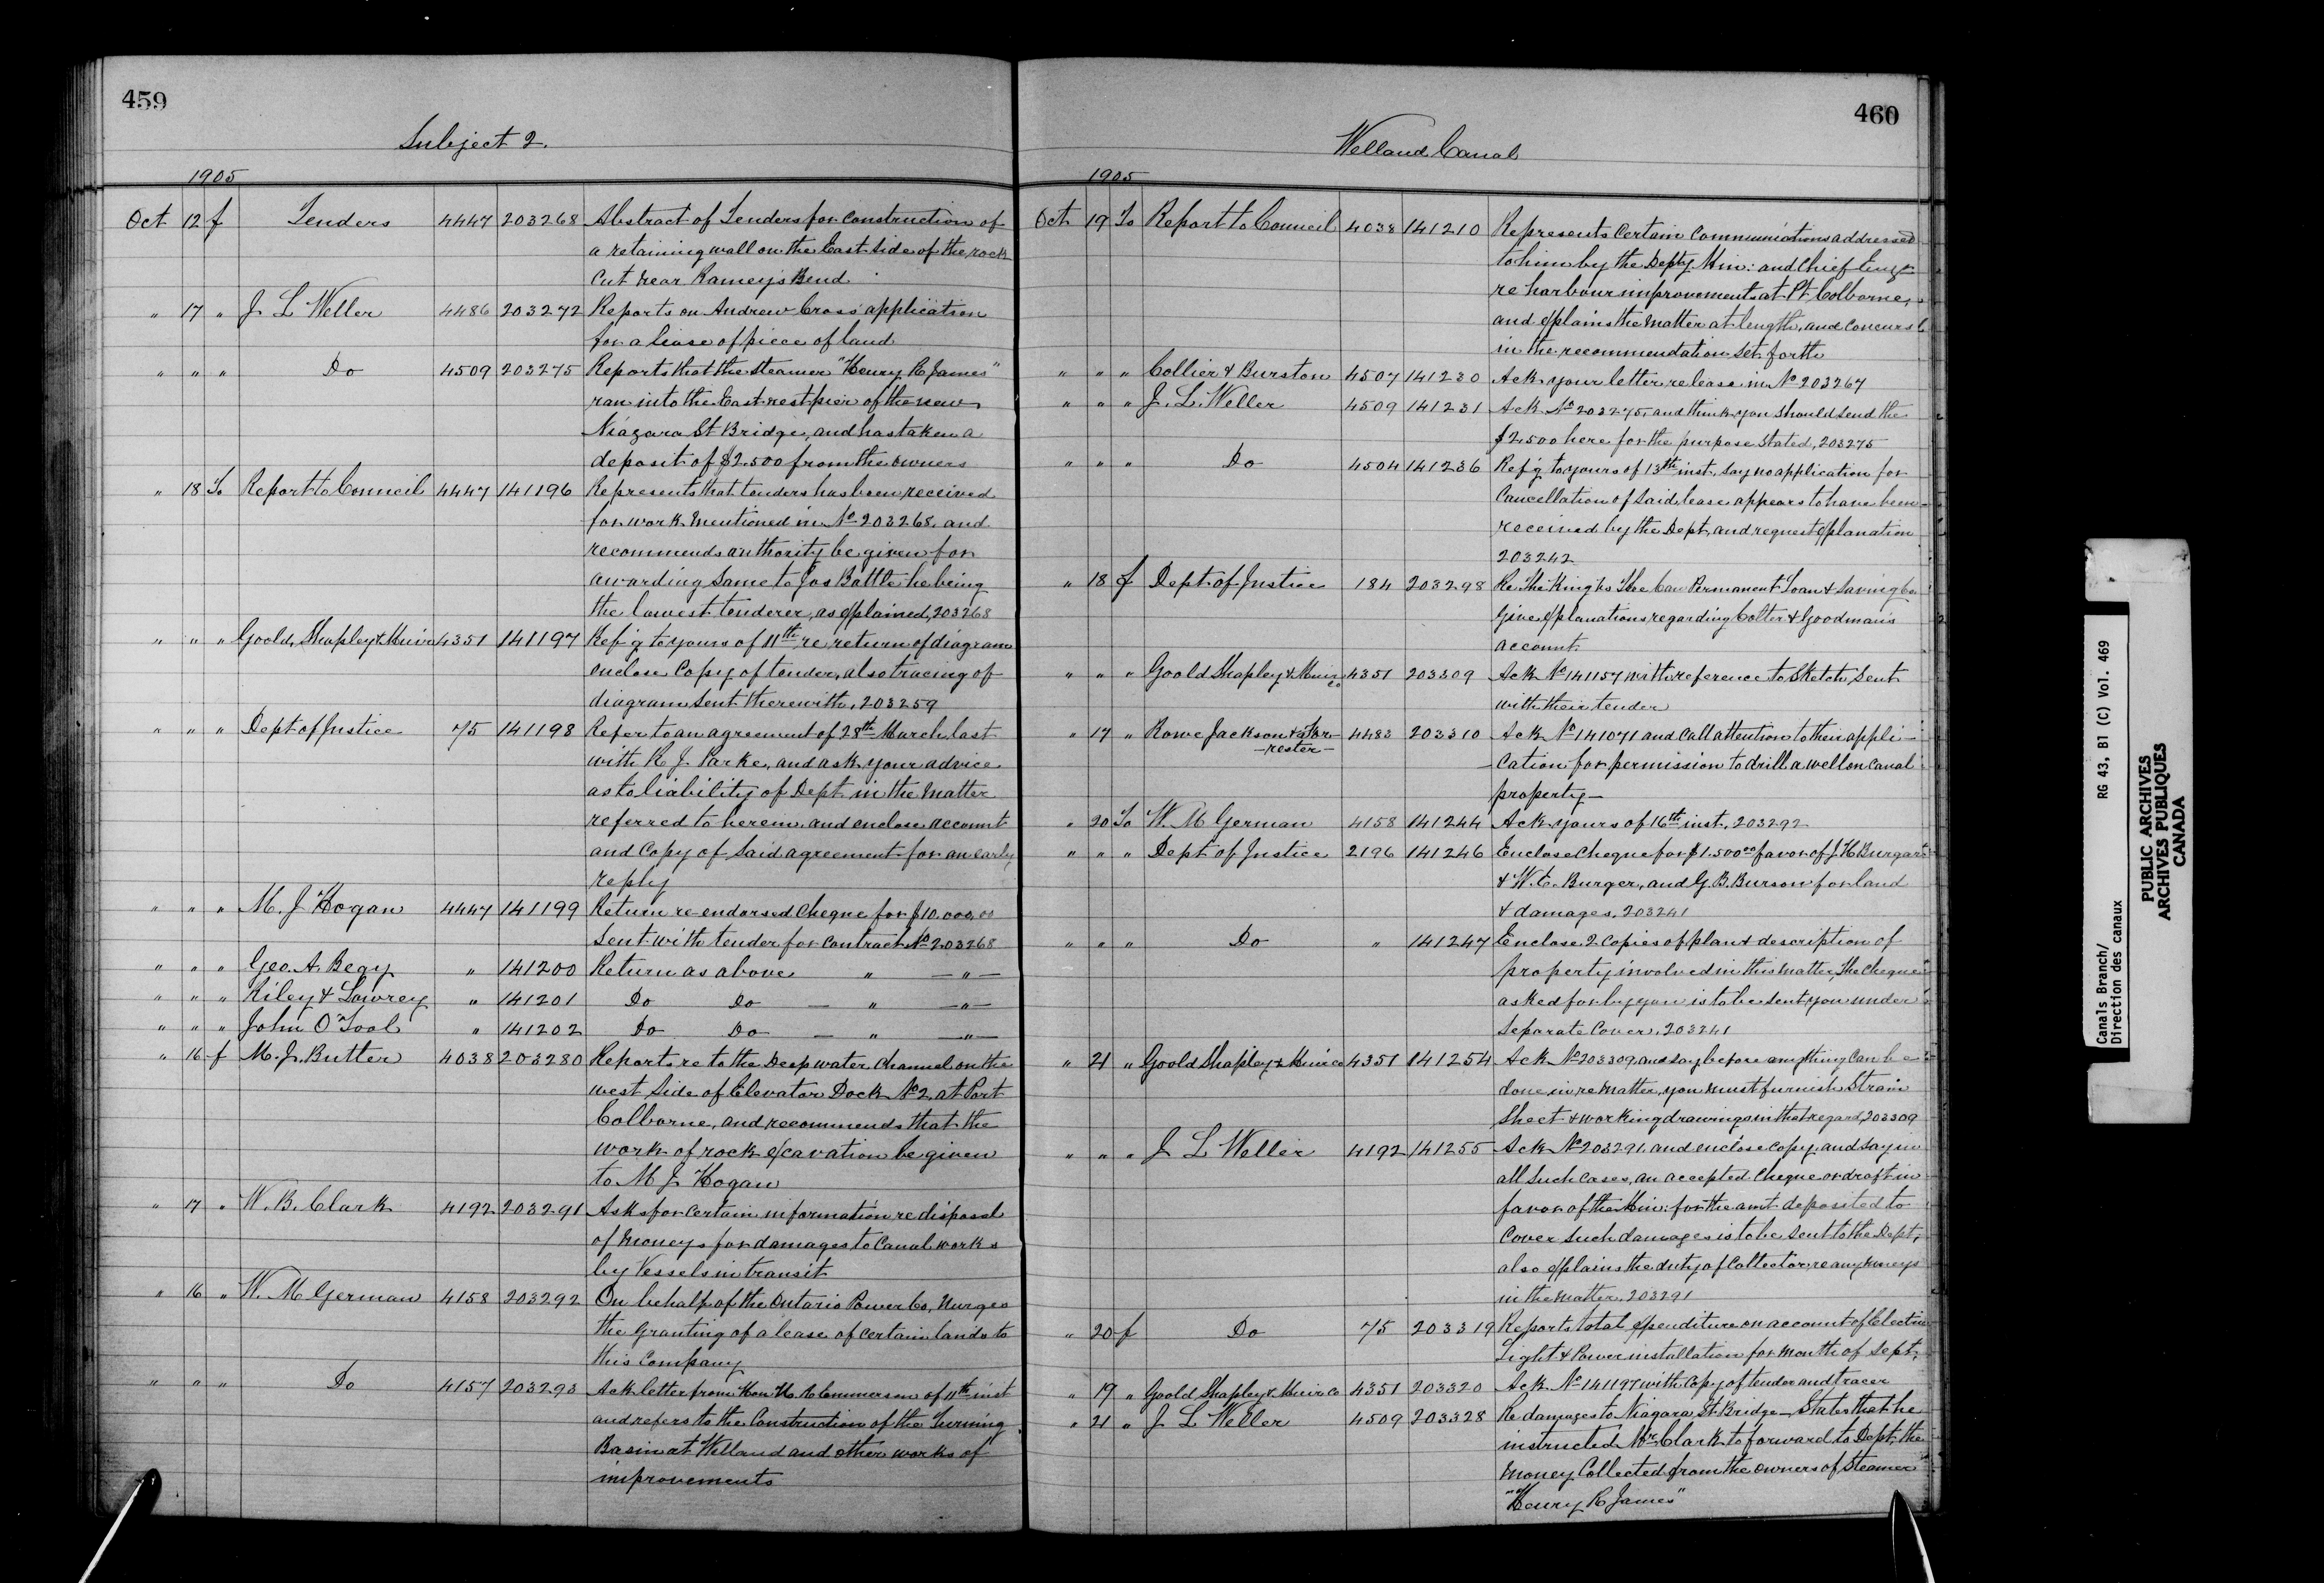 459
Subject 2.
1905
Oct 12 f Tenders 4447 203268 Abstract of Tenders for construction of
a retaining wall on the East side of the rock
cut near Ramey's Bend
" 17 " J L Weller 4486 203272 Reports on Andrew Cross' application
for a lease of piece of land
" " " Do 4509 203275 Reports that the steamer "Henry R James"
ran into the East rest pier of the new
Niagara St Bridge, and has taken a
deposit of $2.500 from the owners
" 18 To Report to Council 4447 141196 Represents that tenders has been received
for work mentioned in No 203268. and
recommends authority be given for
awarding same to Jos Battle he being
the lowest tenderer, as explained, 203268
" " " Goold, Shapley & Muir 4351 141197 Ref'g to yours of 11th re, return of diagram
enclose Copy of tender, also tracing of
diagram sent therewith, 203259
" " " Dept of Justice 75 141198 Refer to an agreement of 28th March last
with R J Parke, and ask your advice
as to liability of Dept in the matter
referred to herein, and enclose account
and Copy of Said agreement for an early
reply
" " " M. J Hogan 4447 141199 Return re-endorsed Cheque for $10.000.00
Sent with tender for contract No 203268
" " " Geo. A. Begy " 141200 Return as above " — " —
" " " Riley & Lowrey " 141201 Do Do — " — " —
" " " John O'Tool " 141202 Do Do — " — " —
" 16 f M. J. Butler 4038 203280 Reports re to the Deep water Channel on the
west side of Elevator Dock No 2, at Port
Colborne, and recommends that the
work of rock excavation be given
to M J Hogan
" 17 " W. B. Clark 4192 203291 Asks for certain information re disposal
of moneys for damages to Canal works
by Vessels in transit
" 16 " W. M German 4158 203292 On behalf of the Ontario Power Co, Nurges
the granting of a lease of certain lands to
this Company
" " " Do 4157 203293 Ack letter from Hon H. R Emmerson of 11th inst
and refers to the Construction of the Turning
Basin at Welland and other works of
improvements
460
Welland Canal
1905
Oct 19 To Report to Council 4038 141210 Represents Certain Communications addressed
to him by the Depty Min: and Chief Eng'r
re harbour improvements at Pt Colborne,
and explains the matter at length, and concurs
in the recommendation set forth
" " " Collier & Burston 4507 141230 Ack your letter re lease in No 203267
" " " J. L. Weller 4509 141231 Ack No 203275, and think you should send the
$2.500 here for the purpose stated, 203275
" " " Do 4504 141236 Ref'g to yours of 13th inst. say no application for
Cancellation of said lease appears to have been
received by the Dept, and request explanation
203242
" 18 f Dept of Justice 184 203298 Re The King vs The Can Permanent Loan & Saving Co
Give explanations regarding Colter & Goodman's
account
" " " Goold Shapley & Muir Co 4351 203309 Ack No 141157 with reference to Sketch sent
with their tender
" 17 " Rowe Jackson & For-
-rester- 4483 203310 Ack No 141071 and Call attention to their appli-
-cation for permission to drill a well on Canal
property—
" 20 To W. M German 4158 141244 Ack yours of 16th inst, 203292
" " " Dept of Justice 2196 141246 Enclose Cheque for $1.500.00 favor of J. H Burgar
& W. E. Burger, and G. B. Burson for land
& damages, 203241
" " " Do " 141247 Enclose 2 Copies of plan & description of
property involved in this matter, The Cheque
asked for by you is to be sent you under
Separate Cover, 203241
" 21 " Goold Shapley & Muir Co 4351 141254 Ack No 203309, and say before anything Can be
done in re matter, you must furnish Strain
Sheet & working drawings in that regard, 203309
" " " J L Weller 4192 141255 Ack No 203291. and enclose copy. and say in
all such cases, an accepted Cheque or draft in
favor of the Min: for the amt deposited to
Cover Such damages is to be sent to the Dept,
also explains the duty of Collector, re any moneys
in the matter. 203291
" 20 f Do 75 203319 Reports total expenditure on account of Electric
Light & Power installation for month of Sept,
" 19 " Goold Shapley & Muir Co 4351 203320 Ack No 141197 with Copy of tender and tracer
" 21 " J L Weller 4509 203328 Re damages to Niagara St Bridge—States that he
instructed Mr. Clark to forward to Dept. the
money Collected from the owners of Steamer
"Henry R James"
Canals Branch/
Direction des canaux
RG 43, B1 (C) Vol. 469
PUBLIC ARCHIVES
ARCHIVES PUBLIQUES
CANADA